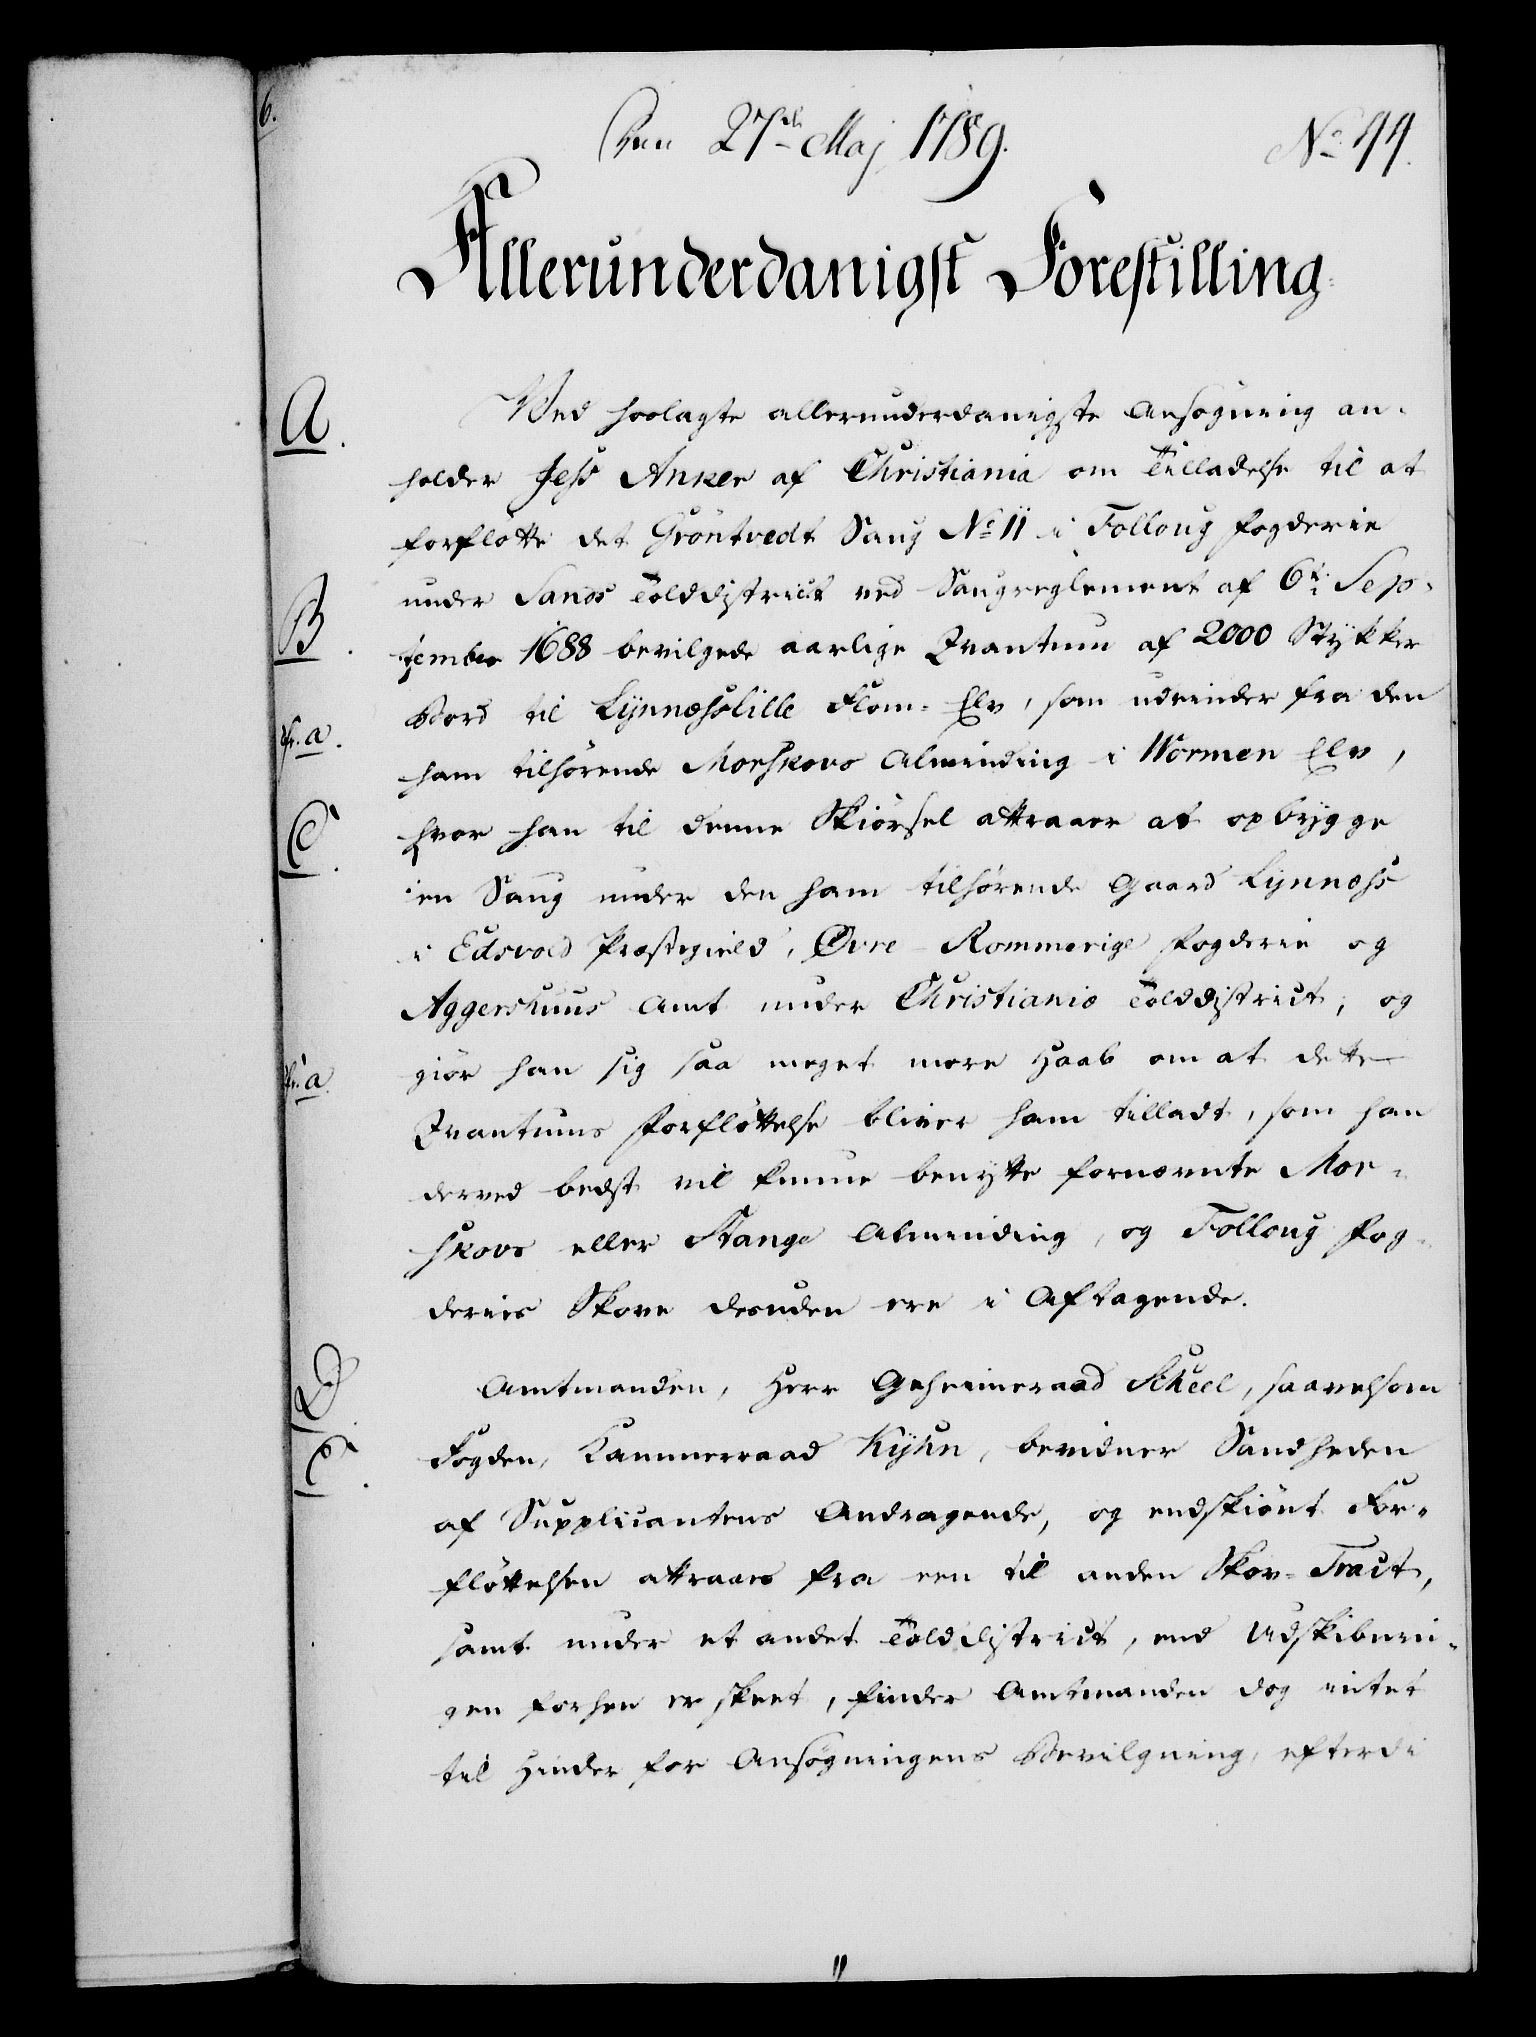 6.
Den 27de Maj 1789.
No 44.
Allerunderdanigst Forestilling.
A.
Ved hoslagte allerunderdanigste Ansøgning an-
holder Jess Anker af Christiania om Tilladelse til at
forflötte det Gröntvedt Saug No 11 i Folloug Fogderie
under Sands Tolddistrict ved Saugreglement af 6te Sep-
B.
tember 1688 bevilgede aarlige Qvantum af 2000 Stykker
Bord til Lÿnnæsslille Flom-Elv, som udrinder fra den
cfr. a.
ham tilhørende Morskovs Alminding i Wormen Elv,
C.
hvor han til denne Skiörsel attraaer at opbygge
en Saug under den ham tilhørende Gaard Lÿnnæss
i Edsvold Præstegield, Øvre-Rommerige Fogderie og
Aggershuus Amt under Christianiæ Tolddistrict, og
cfr. a.
giör han sig saa meget mere Haab om at dette
Qvantums Forflöttelse bliver ham tilladt, som han
derved bedst vil kunne benytte fornævnte Mor-
skovs eller Stange Alminding, og Folloug Fog-
deries Skove desuden ere i Aftagende.
D.
Amtmanden, Herr Geheimeraad Scheel, saavelsom
E.
Fogden, Kammerraad Kÿhn, bevidner Sandheden
af Supplicantens Andragende, og endskiönt For-
flöttelsen attraaes fra een til anden Skov-Tract,
samt under et andet Tolddistrict, end Udskibnin-
gen forhen er skeet, finder Amtmanden dog intet
til Hinder for Ansøgningens Bevilgning, efterdi